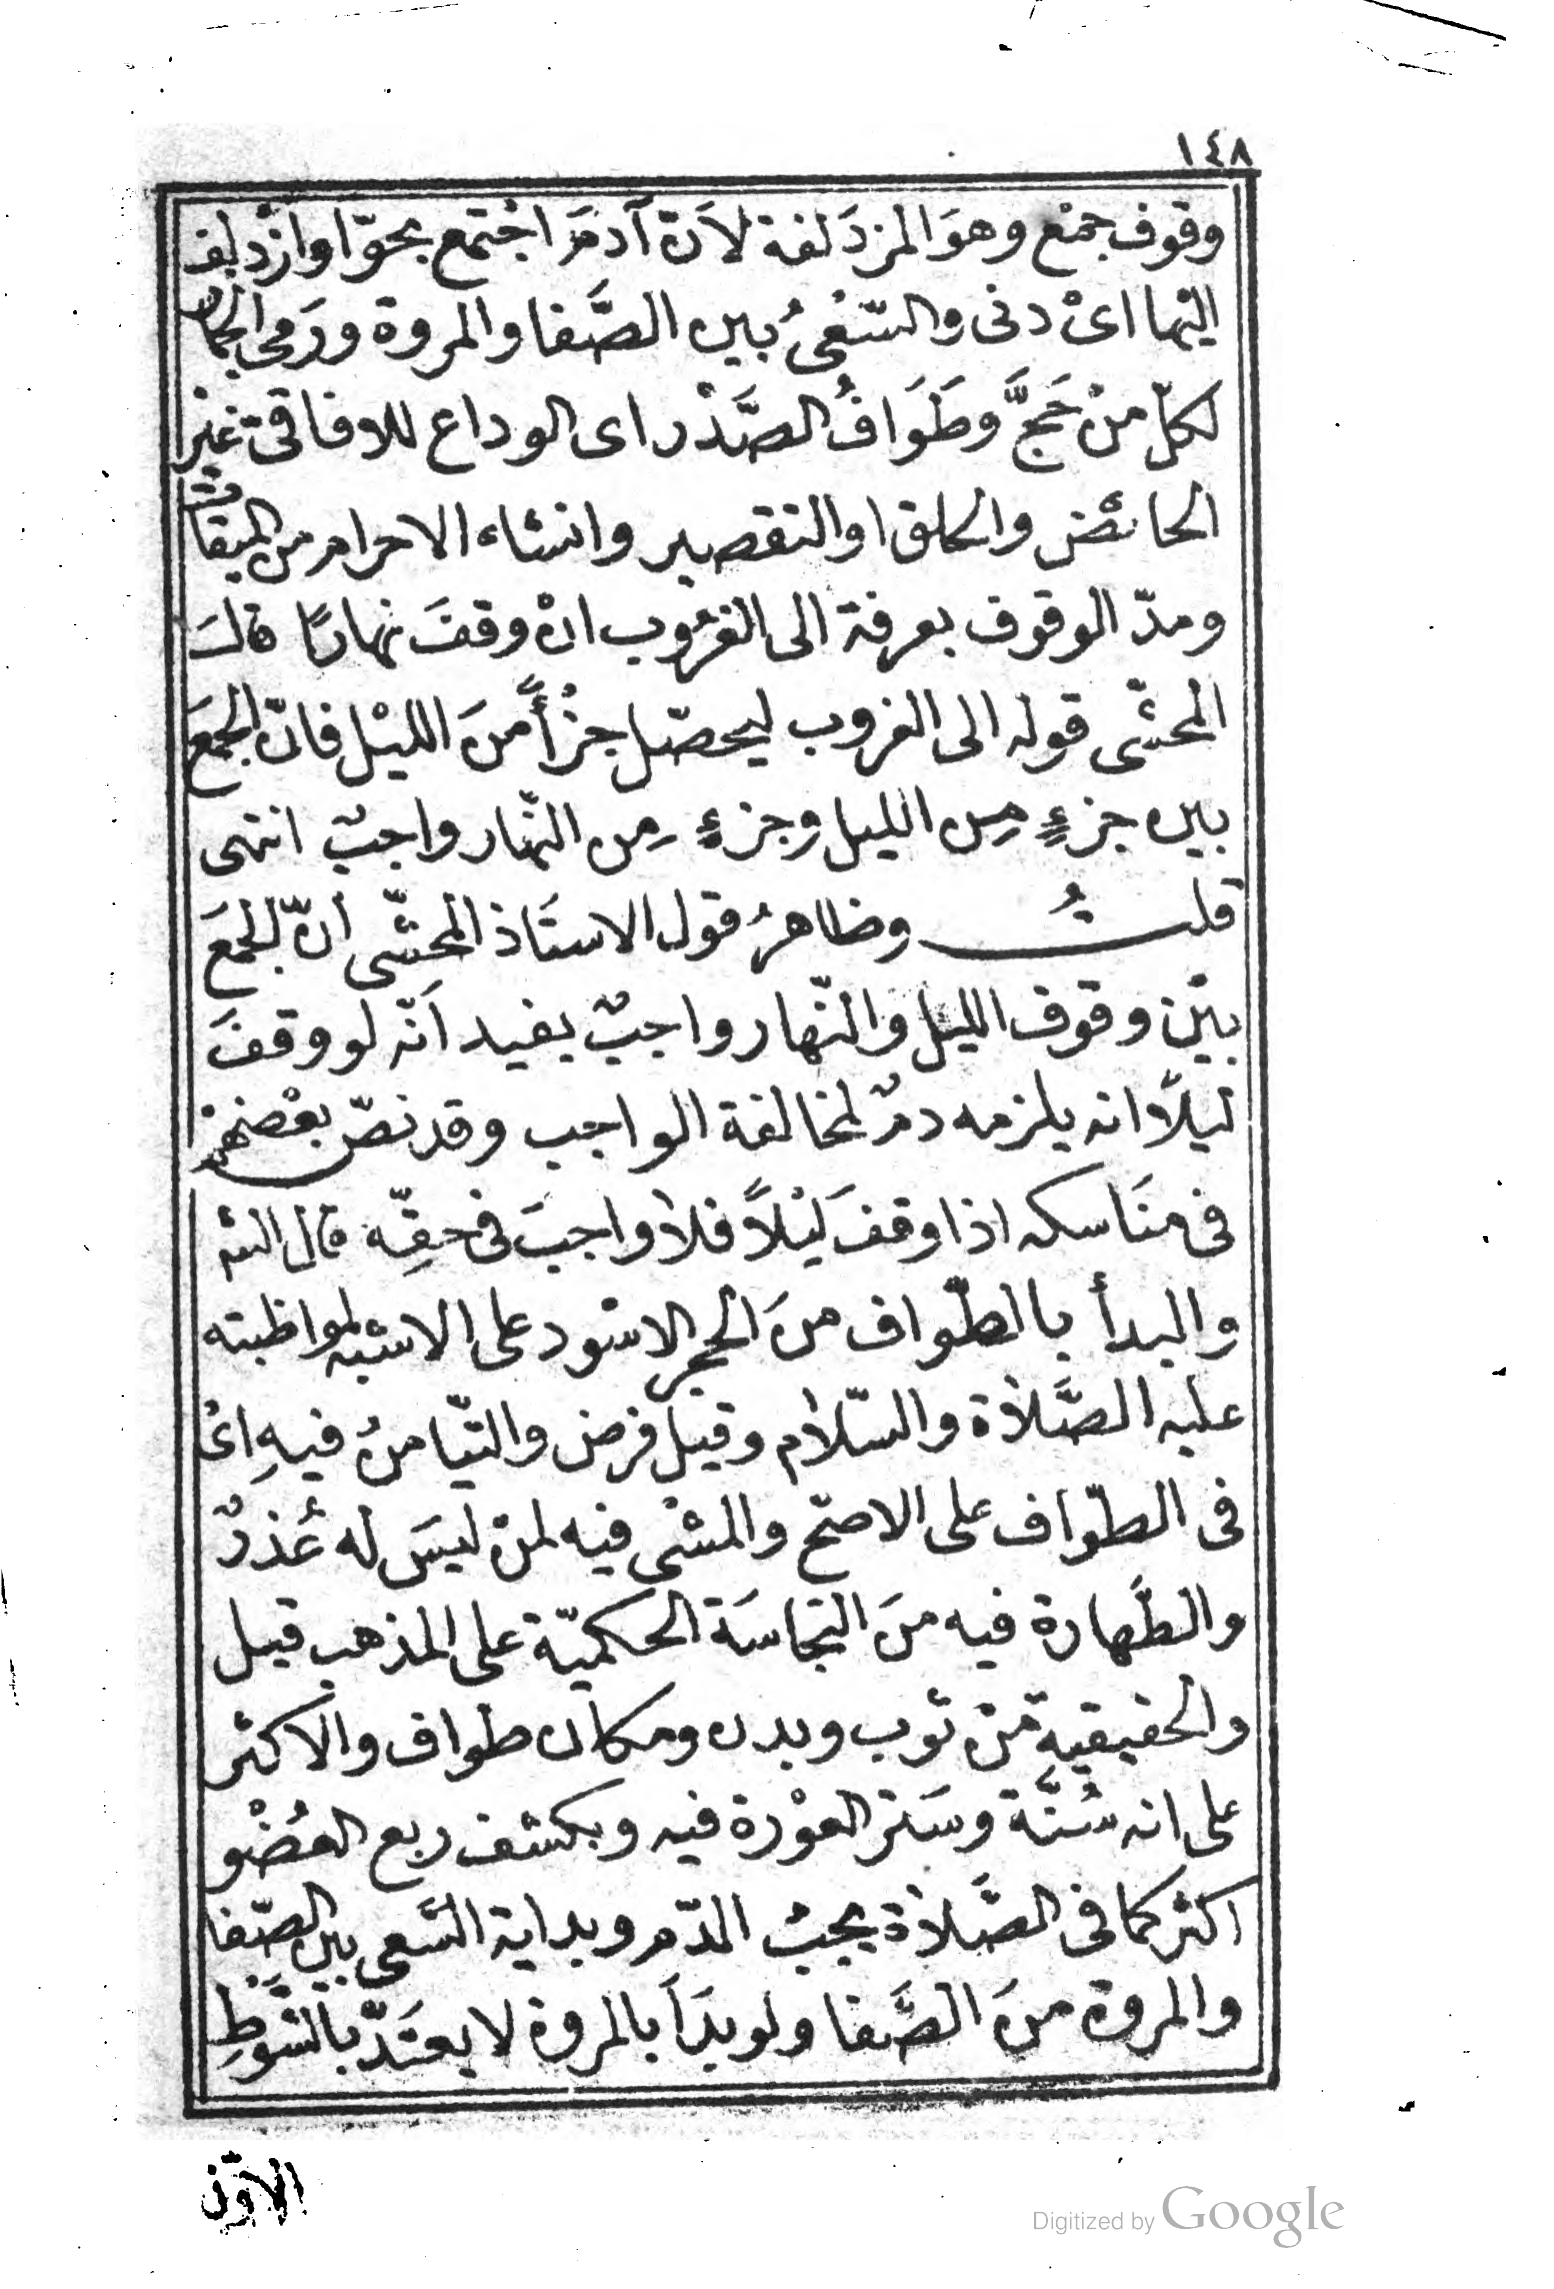 ١٤٨
وقوف جمْع وهوَ المزدَلفة لاَنّ آدمَ اجْتمع بحوّا وازْدلف
اليْها اىْ دنى والسّعْىُ بين الصَّفا والمروة ورَمى الجمار
لكلّ منْ حَجَّ وطَوَافُ الصَّدْر اى الوداع للافاقىّ غيْر
الحائض والحلق او التقصير وانشاء الاحرام من الميقات
ومدّ الوقوف بعرفة الى الغرُوب انْ وقفَ نهارًا قالَ
المحشّى قوله الى الغروب ليحصّل جزْأً منَ الليْل فانّ الجمْعَ
بين جزءٍ مِن الليل وجزءٍ مِن النّهار واجبٌ انتهى
قلتُ وظاهرُ قول الاستَاذ المحشّى انّ الجمْعَ
بيْن وقوف الليل والنّهار واجبٌ يفيد اَنّه لو وقفَ
ليلاً انه يلزمه دمٌ لمخالفة الواجب وقد نصّ بعْضهمْ
فى منَاسكه اذا وقفَ ليْلاً فلا واجبَ فى حقِّه قال الشه
والبدأ بالطّواف منَ الحجر الاسْود على الاشبه لمواظبته
عليه الصَّلاة والسّلام وقيل فرض والتيّامنُ فيهِ اىْ
فى الطّواف على الاصحّ والمشْى فيه لمنْ ليسَ له عُذرٌ
والطَّهارة فيه منَ النّجاسَة الحكميّة على المذهب قيل
والحقيقية منْ ثوب وبدن ومكان طواف والاكثر
على انه سُنَّة وسَتر العوْرة فيه وبكشف ربع العضْو
اكثر كما فى الصَّلاة يجبُ الدّم وبداية السّعى بين الصّفا
والمروة منَ الصَّفا ولو بدَأ بالمروة لا يعتَدّ بالشَّوطِ
الاوّل
Digitized by Google